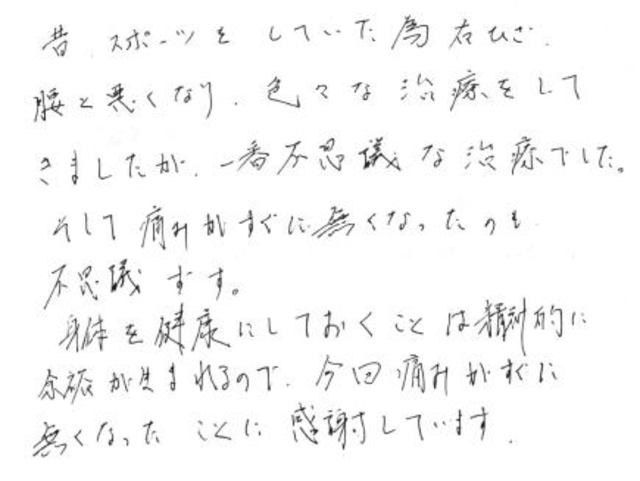 昔、スポーツをしていた為右ひざ、
腰と悪くなり、色々な治療をして
きましたが、一番不思議な治療でした。
そして痛みがすぐに無くなったのも
不思議です。
身体を健康にしておくことは精神的に
余裕が生まれるので、今回痛みがすぐに
無くなったことに感謝しています。